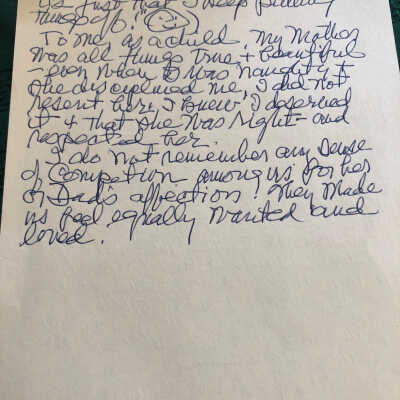 is just that I keep putting
things off!
To me as a child, my Mother
was all things true + beautiful
- even when I was naughty +
she disciplined me, I did not
resent her, I knew I deserved
it + that she was right - and
respected her.
I do not remember any sense
of Competion among us for her
or Dad's affection! They made
us feel equally wanted and
loved.